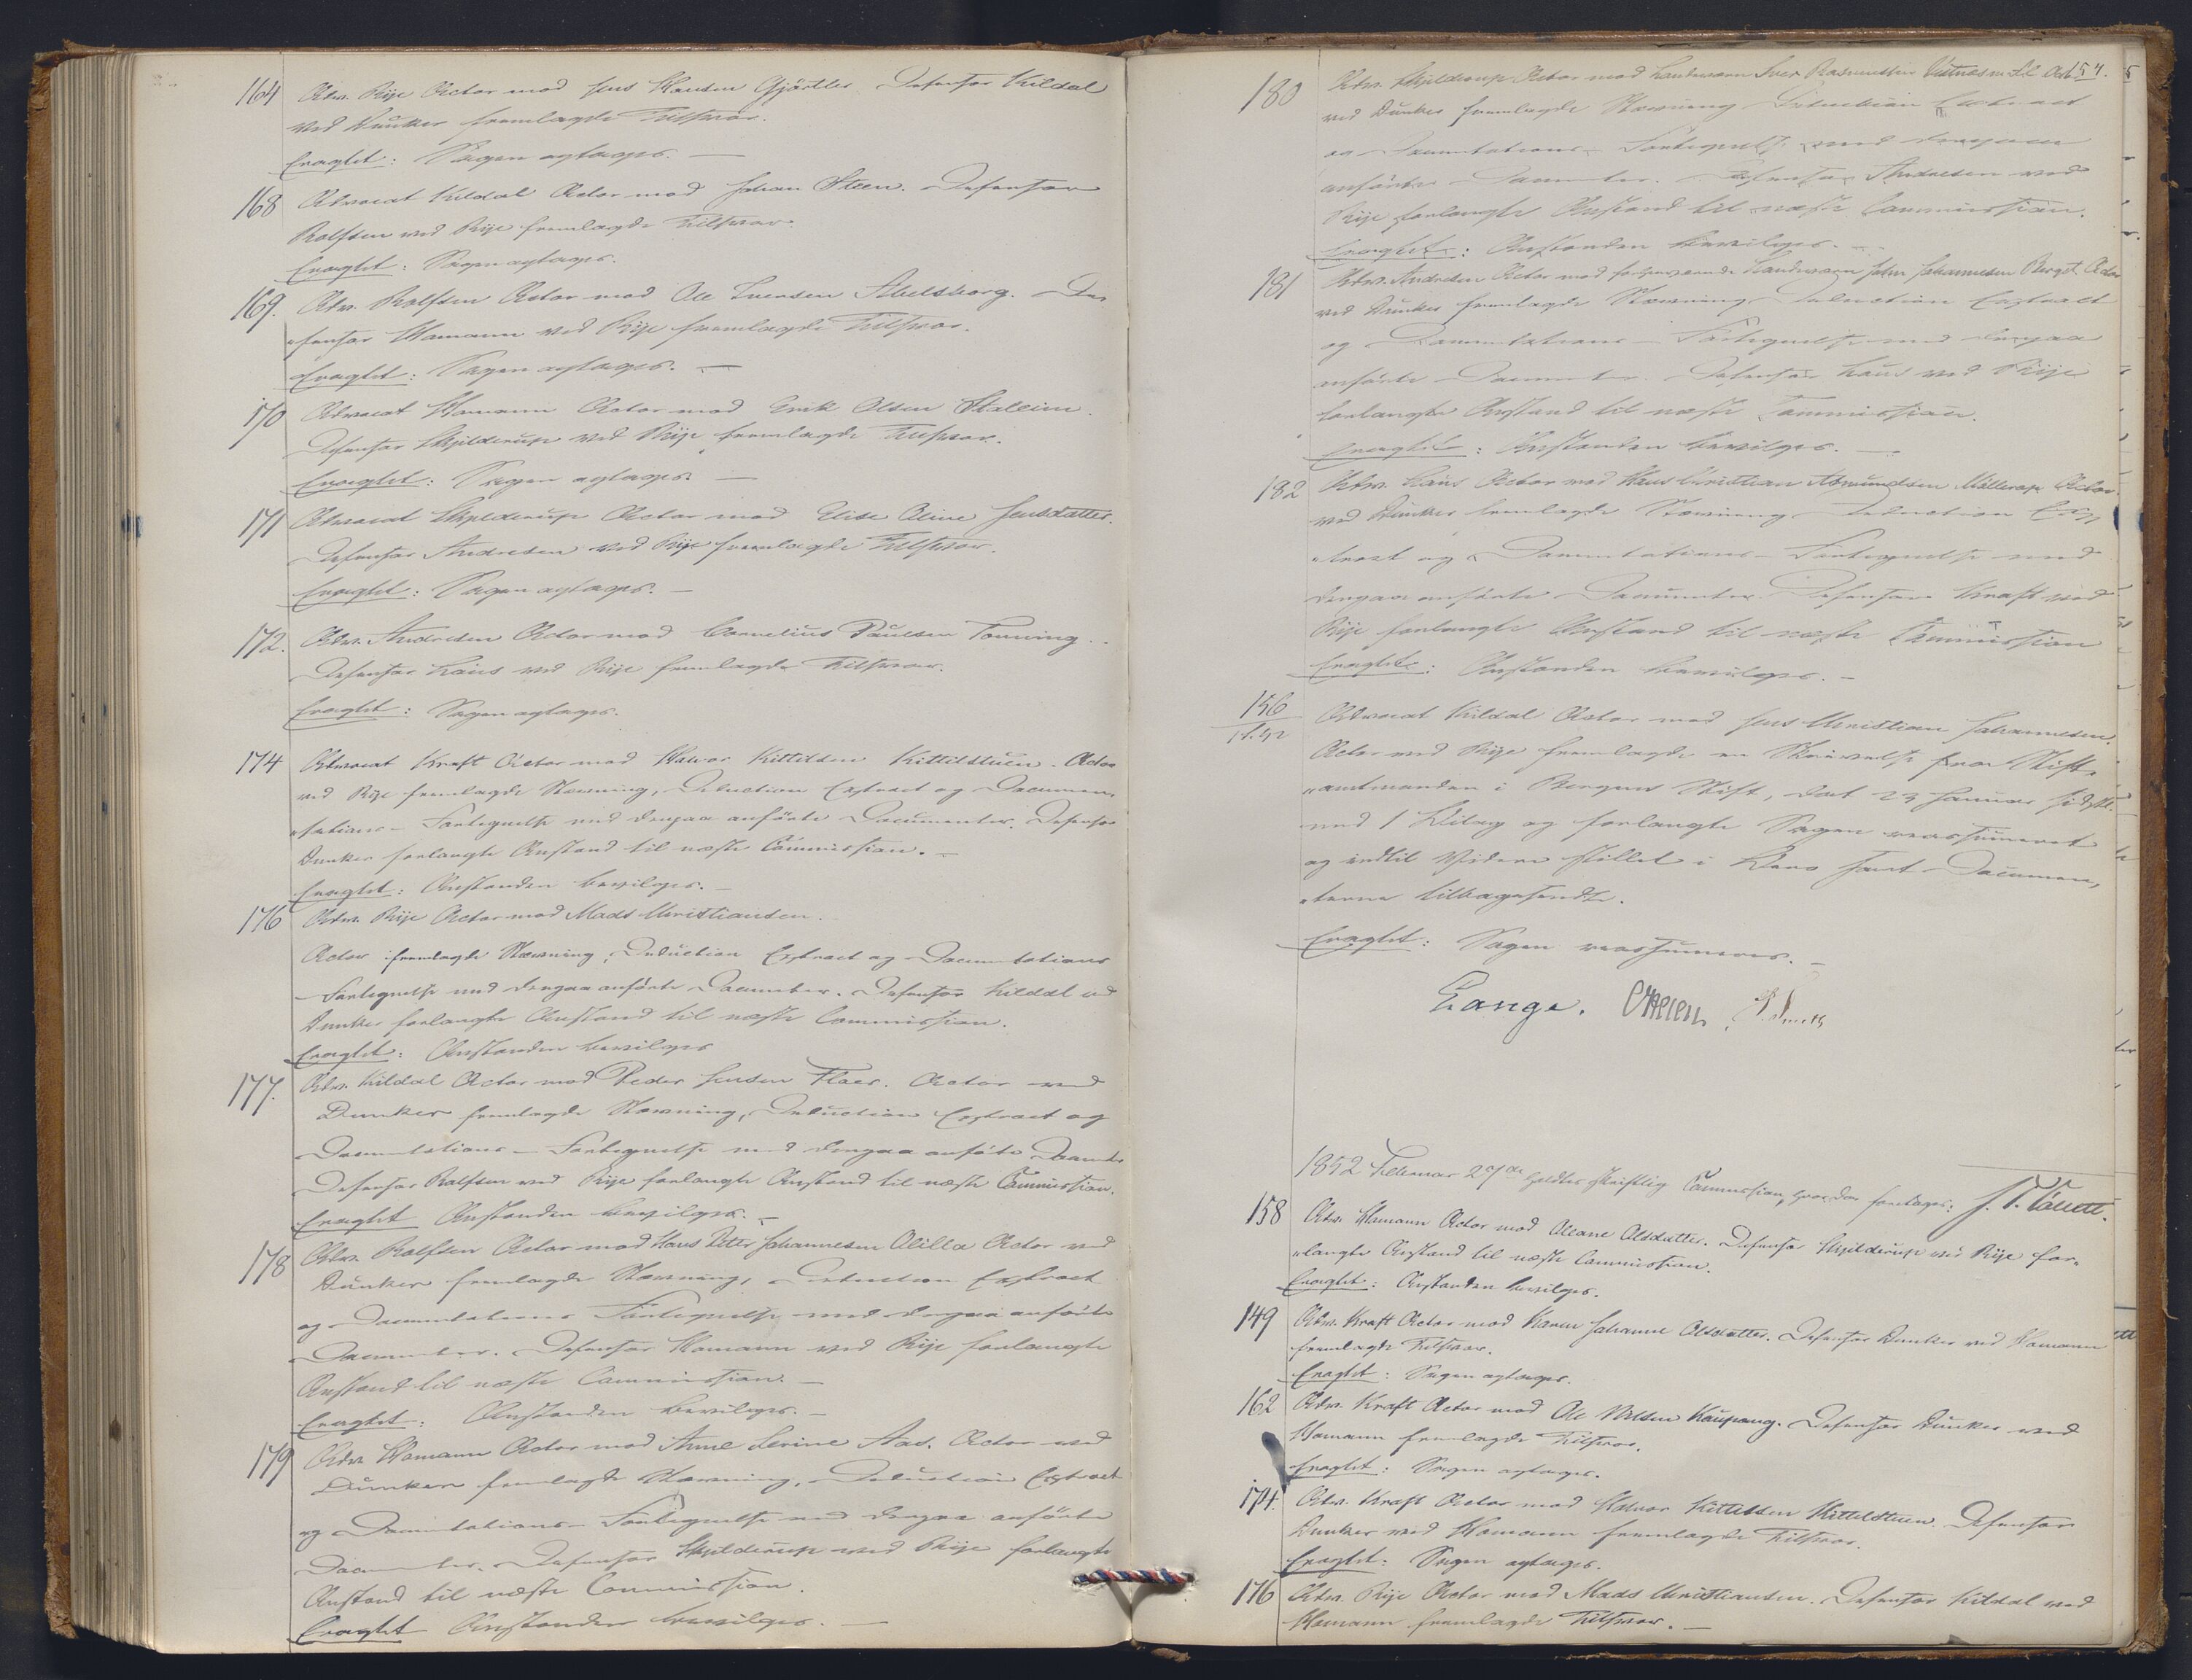 164 Adv. Rije Actor mod Jens Hansen Gjörtler Defensor Kildal
ved Dunker fremlagde Tilsvar.
Eragtet: Sagen optages. —
168 Advocat Kildal Actor mod Johan Steen. Defensor
Rolfsen ved Rije fremlagde Tilsvar.
Eragtet: Sagen optages.
169. Adv. Rolfsen Actor mod Ole Iversen Abelsborg. De-
fensor Hamann ved Rije fremlagde Tilsvar.
Eragtet: Sagen optages. —
170 Advocat Hamann Actor mod Erik Olsen Staleim.
Defensor Skjelderup ved Rije fremlagde Tilsvar.
Eragtet: Sagen optages. —
171 Advocat Skjelderup Actor mod Elise Oline Jensdatter.
Defensor Andresen ved Rije fremlagde Tilsvar.
Eragtet: Sagen optages. —
172. Adv. Andresen Actor mod Cornelius Paulsen Tonning.
Defensor Laus ved Rije fremlagde Tilsvar.
Eragtet: Sagen optages.
174 Advocat Kraft Actor mod Halvor Kittilsen Kittilstuen. Actor
ved Rije fremlagde Stævning, Deduction Extract og Documen-
tations-Fortegnelse med derpaa anförte Documenter. Defensor
Dunker forlangte Anstand til næste Commission. —
Eragtet: Anstanden bevilges. —
176 Adv. Rije Actor mod Mads Christiansen.
Actor fremlagde Stævning, Deduction Extract og Documentations
Fortegnelse med derpaa anförte Documenter. Defensor Kildal ved
Dunker forlangte Anstand til næste Commission.
Eragtet: Anstanden bevilges
177. Adv. Kildal Actor mod Peder Jensen Flaer. Actor ved
Dunker fremlagde Stævning, Deduction Extract og
Documentations-Fortegnelse med derpaa anförte Documenter
Defensor Rolfsen ved Rije forlangte Anstand til næste Commission.
Eragtet Anstanden bevilges. —
178 Adv. Rolfsen Actor mod Hans Peter Johannesen Olilla Actor ved
Dunker fremlagde Stævning, Deduction Extract
og Documentations Fortegnelse med derpaa anförte
Documenter. Defensor Hamann ved Rije forlangte
Anstand til næste Commission. —
Eragtet: Anstanden bevilges. —
179 Adv. Hamann Actor mod Anne Serine Aas. Actor ved
Dunker fremlagde Stævning, Deduction Extract
og Documentations-Fortegnelse med derpaa anförte
Documenter. Defensor Skjelderup ved Rije forlangte
Anstand til næste Commission.
Eragtet Anstanden bevilges. —
54.
180 Adv. Skjelderup Actor mod Landværn Iver Rasmussen Actor
ved Dunker fremlagde Stævning Deduction Extract
og Documentations-Fortegnelse med derpaa
anförte Documenter. Defensor Andresen ved
Rije forlangte Anstand til næste Commission.
Eragtet: Anstanden bevilges. —
181 Adv. Andresen Actor mod forhenværende Landværn John Johannesen Actor
ved Dunker fremlagde Stævning Deduction Extract
og Documentations-Fortegnelse med derpaa
anförte Documenter. Defensor Laus ved Rije
forlangte Anstand til næste Commission.
Eragtet: Anstanden bevilges. —
182 Adv. Laus Actor mod Hans Christian Asmundsen Actor
ved Dunker fremlagde Stævning Deduction Ex-
tract og Documentations-Fortegnelse med
derpaa anförte Documenter Defensor Kraft ved
Rije forlangte Anstand til næste Commission
Eragtet: Anstanden bevilges. —
156 Advocat Kildal Actor mod Jens Christian Johannesen.
Actor ved Rije fremlagde en Skrivelse fra Stift-
amtmanden i Bergens Stift, dat 23 Januar sidstl.
med 1 Bilag og forlangte Sagen reassumeret
og indtil Videre stillet i Bero samt Documen-
terne tilbagesendte.
Eragtet: Sagen reassumeres. —
Lange.
1852 Februar 27de holdtes skriftlig Commission, hvor da foretages:
158 Adv. Hamann Actor mod Oleane Olsdatter. Defensor Skjelderup ved Rije for-
langte Anstand til næste Commission.
Eragtet: Anstanden bevilges.
149 Adv. Kraft Actor mod Karen Johanne Olsdatter. Defensor Dunker ved Hamann
fremlagde Tilsvar.
Eragtet: Sagen optages.
162 Adv. Kraft Actor mod Ole Nilsen Kaupang. Defensor Dunker ved
Hamann fremlagde Tilsvar.
Eragtet: Sagen optages.
174. Adv. Kraft Actor mod Halvor Kittilsen Kittilstuen. Defensor
Dunker ved Hamann fremlagde Tilsvar.
Eragtet: Sagen optages.
176 Adv. Rije Actor mod Mads Christiansen. Defensor Kildal ved
Hamann fremlagde Tilsvar. —